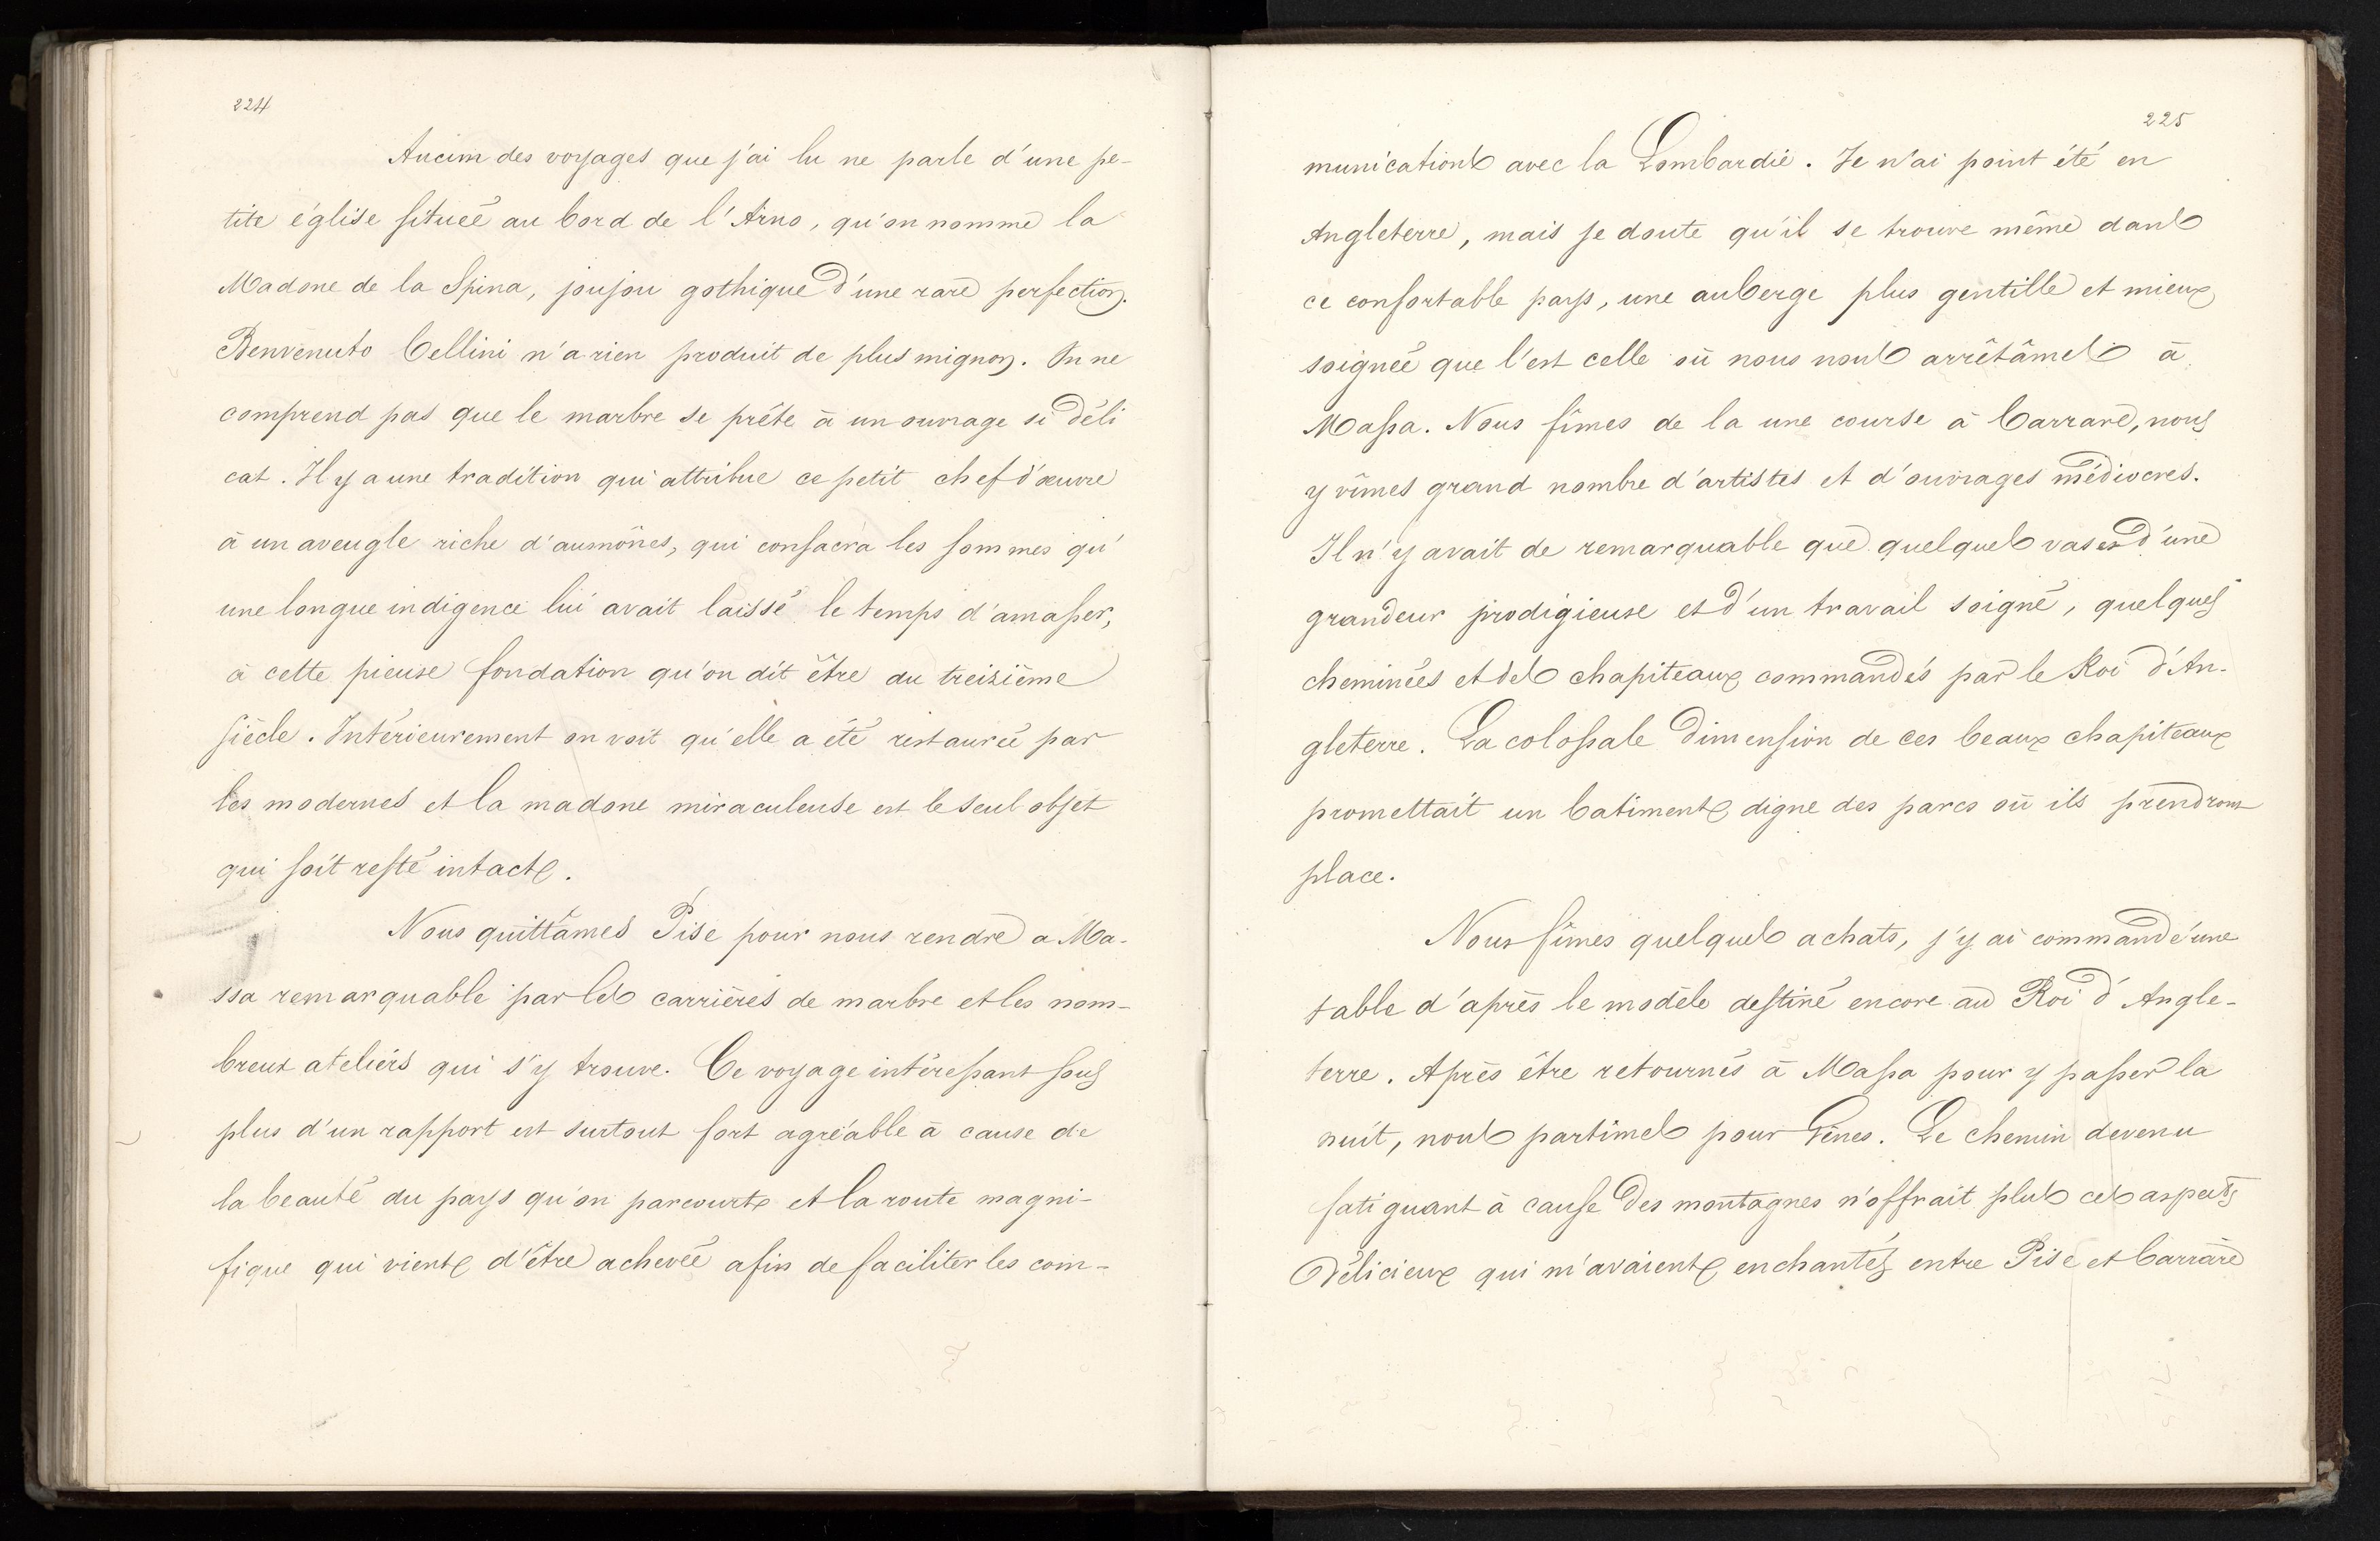 224
Aucun des voyages que j'ai lu ne parle d'une pe-
tite église située au bord de l'Arno, qu'on nomme la
Madone de la Spina, joujou gothique d'une rare perfection.
Benvenuto Cellini n'a rien produit de plus mignon. On ne
comprend pas que le marbre se prête à un ouvrage si déli
cat. Il y a une tradition qui attribue ce petit chef d'œuvre
à un aveugle riche d'aumônes, qui consacra les sommes qu'
une longue indigence lui avait laissé le temps d'amasser,
à cette pieuse fondation qu'on dit être du treizième
siècle. Intérieurement on voit qu'elle a été restaurée par
les modernes et la madone miraculeuse est le seul objet
qui soit resté intact.
Nous quittâmes Pise pour nous rendre a Ma-
ssa remarquable par les carrières de marbre et les nom-
breux ateliers qui s'y trouve. Ce voyage intéressant sous
plus d'un rapport est surtout fort agréable à cause de
la beauté du pays qu'on parcourt et la route magni-
fique qui vient d'être achevée afin de faciliter les com-
225
munications avec la Lombardie. Je n'ai point été en
Angleterre, mais je doute qu'il se trouve même dans
ce confortable pays, une auberge plus gentille et mieux
soignée que l'est celle où nous nous arrêtâmes à
Massa. Nous fîmes de la une course à Carrare, nous
y vîmes grand nombre d'artistes et d'ouvrages médiocres.
Il n'y avait de remarquable que quelques vases d'une
grandeur prodigieuse et d'un travail soigné, quelques
cheminées et des chapiteaux commandés par le Roi d'An-
gleterre. La colossale dimension de ces beaux chapiteaux
promettait un batiment digne des parcs où ils prendront
place.
Nous fîmes quelques achats, j'y ai commandé une
table d'après le modèle destiné encore au Roi d'Angle-
terre. Après être retournés à Massa pour y passer la
nuit, nous partimes pour Gênes. Le chemin devenu
fatiguant à cause des montagnes n'offrait plus ces aspects
délicieux qui m'avaient enchantés entre Pise et Carrare